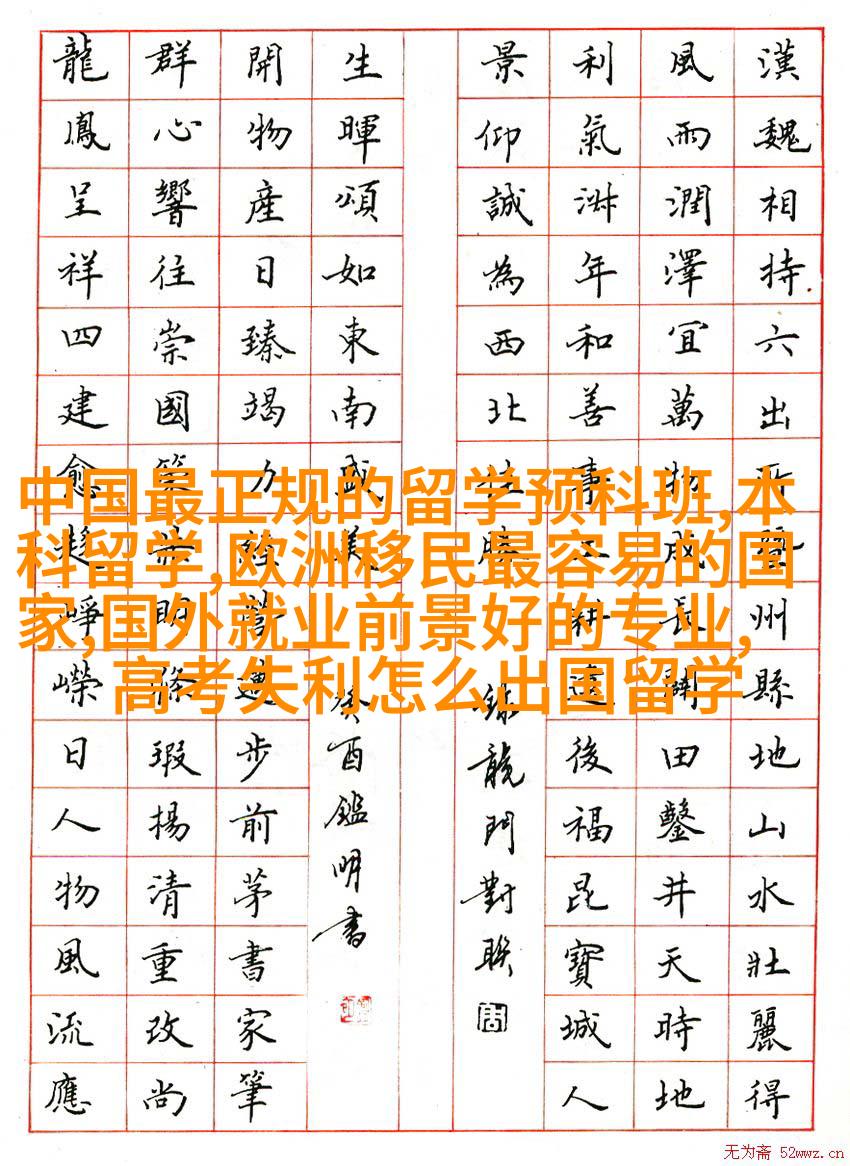 漢魏相持六出州縣地山水壯麗得
風雨潤澤宜萬物成長闢田鑿井天時地
利氣淋年和善事耕遠後福昆寶城人
景仰誠為西北勝
錄龍門對聯
生暉頌如東南盛美
癸酉鑑明書
開物產日臻竭力營邁步前茅書家筆
群心響往崇國策明滌瑕揚清重改尚
龍鳳呈祥四建愈趨崢嶸日人物風流應
中国最正规的留学预科班,本
科留学,欧洲移民最容易的国
家,国外就业前景好的专业,
高考失利怎么出国留学
无为斋 52wwz.cn